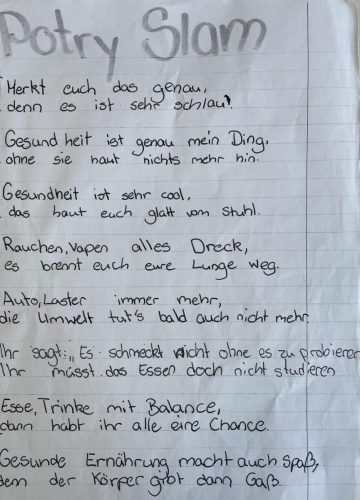 Potry Slam
Merkt euch das genau,
denn es ist sehr schlau!
Gesund heit ist genau mein Ding,
ohne sie haut nichts mehr hin.
Gesundheit ist sehr cool,
das haut euch glatt vom Stuhl.
Rauchen, Vapen alles Dreck,
es brennt euch eure Lunge weg.
Auto, Laster immer mehr,
die Umwelt tut's bald auch nicht mehr.
Ihr sagt:,, Es schmeckt nicht ohne es zu probieren
Ihr müsst das Essen doch nicht studieren
Esse, Trinke mit Balance,
dann habt ihr alle eine Chance.
Gesunde Ernährung macht auch Spaß,
denn der Körper gibt dann Gaß.